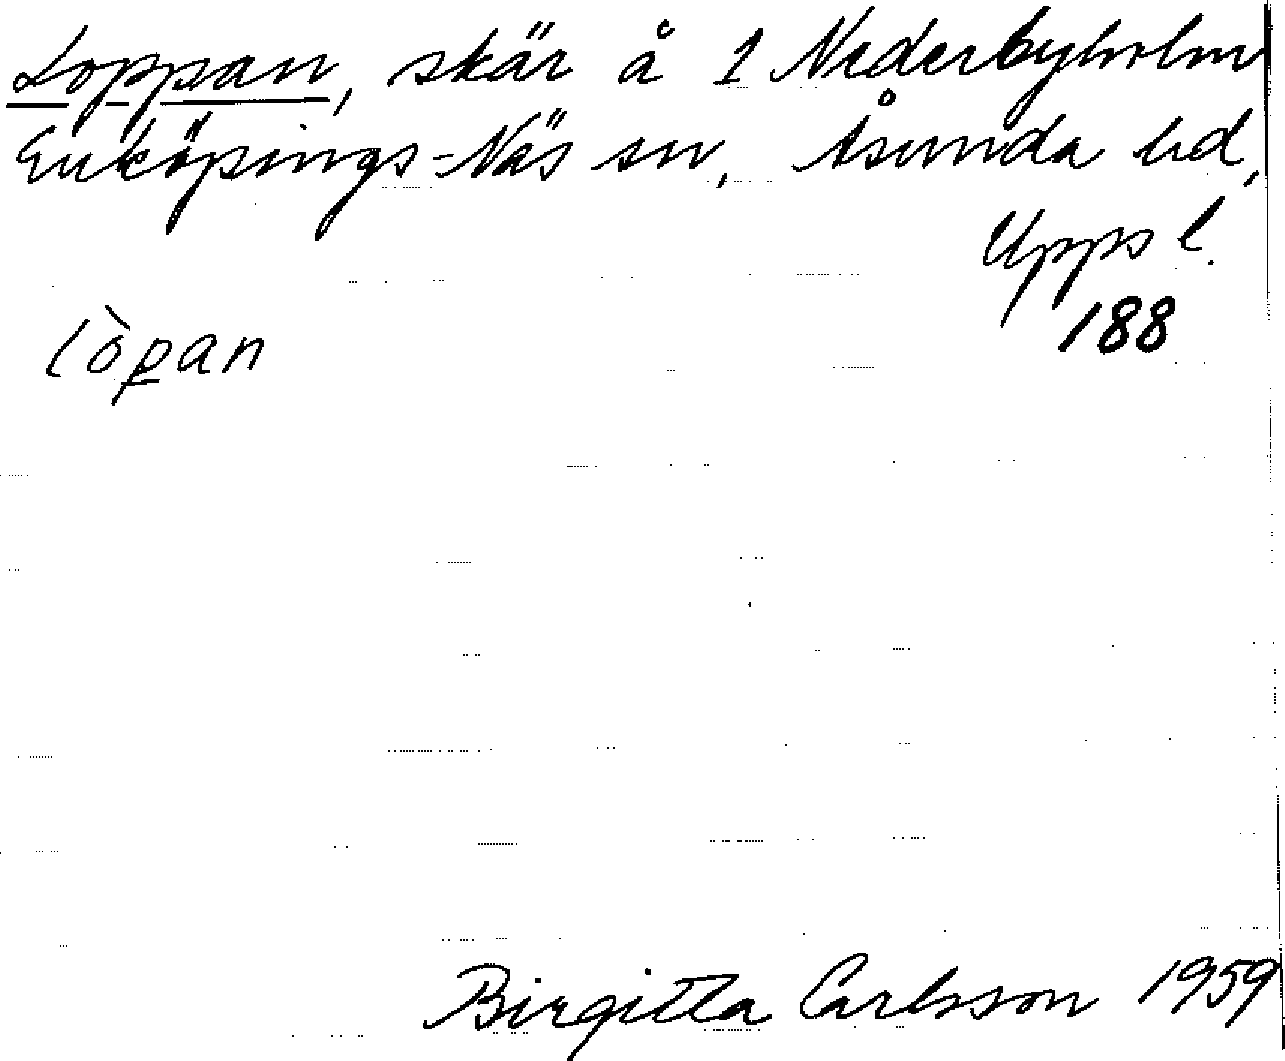 Loppan, skär å 1 Nederbyholm
Enköpings-Näs sn, Åsunda hd,
Upps l.
188
lòp̲an
Birgitta Carlsson 1959